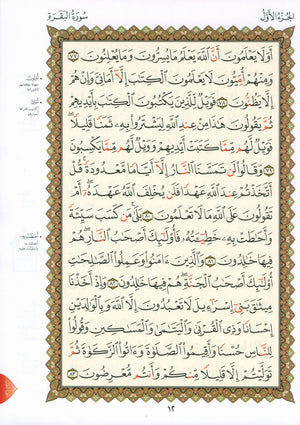 الجزء الأول
سورة البقرة
أَوَلَا يَعْلَمُونَ أَنَّ ٱللَّهَ يَعْلَمُ مَا يُسِرُّونَ وَمَا يُعْلِنُونَ ٧٧
وَمِنْهُمْ أُمِّيُّونَ لَا يَعْلَمُونَ ٱلْكِتَٰبَ إِلَّآ أَمَانِىَّ وَإِنْ هُمْ
إِلَّا يَظُنُّونَ ٧٨ فَوَيْلٌ لِّلَّذِينَ يَكْتُبُونَ ٱلْكِتَٰبَ بِأَيْدِيهِمْ
ثُمَّ يَقُولُونَ هَٰذَا مِنْ عِندِ ٱللَّهِ لِيَشْتَرُوا۟ بِهِۦ ثَمَنًا قَلِيلًا
فَوَيْلٌ لَّهُم مِّمَّا كَتَبَتْ أَيْدِيهِمْ وَوَيْلٌ لَّهُم مِّمَّا يَكْسِبُونَ
٧٩ وَقَالُوا۟ لَن تَمَسَّنَا ٱلنَّارُ إِلَّآ أَيَّامًا مَّعْدُودَةً قُلْ
أَتَّخَذْتُمْ عِندَ ٱللَّهِ عَهْدًا فَلَن يُخْلِفَ ٱللَّهُ عَهْدَهُۥٓ أَمْ
تَقُولُونَ عَلَى ٱللَّهِ مَا لَا تَعْلَمُونَ ٨٠ بَلَىٰ مَن كَسَبَ سَيِّئَةً
وَأَحَٰطَتْ بِهِۦ خَطِيٓـَٔتُهُۥ فَأُو۟لَٰٓئِكَ أَصْحَٰبُ ٱلنَّارِ هُمْ
فِيهَا خَٰلِدُونَ ٨١ وَٱلَّذِينَ ءَامَنُوا۟ وَعَمِلُوا۟ ٱلصَّٰلِحَٰتِ
أُو۟لَٰٓئِكَ أَصْحَٰبُ ٱلْجَنَّةِ هُمْ فِيهَا خَٰلِدُونَ ٨٢ وَإِذْ أَخَذْنَا
مِيثَٰقَ بَنِىٓ إِسْرَٰٓءِيلَ لَا تَعْبُدُونَ إِلَّا ٱللَّهَ وَبِٱلْوَٰلِدَيْنِ
إِحْسَانًا وَذِى ٱلْقُرْبَىٰ وَٱلْيَتَٰمَىٰ وَٱلْمَسَٰكِينِ وَقُولُوا۟
لِلنَّاسِ حُسْنًا وَأَقِيمُوا۟ ٱلصَّلَوٰةَ وَءَاتُوا۟ ٱلزَّكَوٰةَ ثُمَّ
تَوَلَّيْتُمْ إِلَّا قَلِيلًا مِّنكُمْ وَأَنتُم مُّعْرِضُونَ ٨٣
١٢